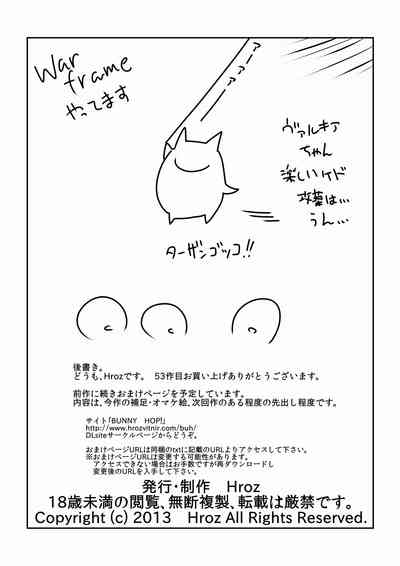 War
frame
やってます
ヴァルキア
ちゃん
楽しいケド
うん…
ターザンゴッコ!!
後書き。
どうも、Hrozです。 53作目お買い上げありがとうございます。
前作に続きおまけページを予定しています。
内容は、今作の補足・オマケ絵、次回作のある程度の先出し程度です。
サイト「BUNNY HOP!」
http://www.hrozvitnir.com/buh/
DLsiteサークルページからどうぞ。
おまけページURLは同梱のtxtに記載のURLよりアクセスして下さい。
※おまけページURLは変更する可能性があります。
アクセスできない場合はお手数ですが再ダウンロードし
変更後のURLを入手して下さい。
発行・制作 Hroz
18歳未満の閲覧、無断複製、転載は厳禁です。
Copyright (c) 2013 Hroz All Rights Reserved.